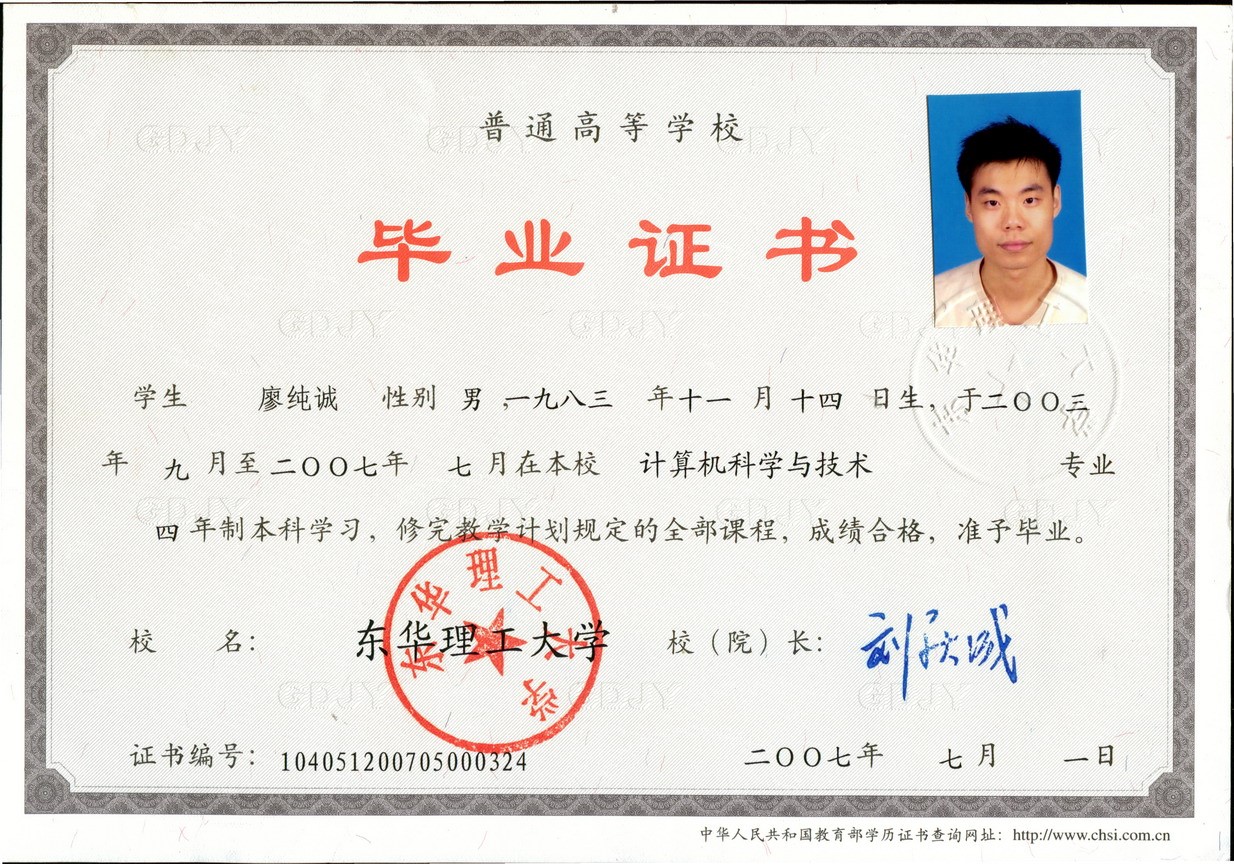 普通高等学校
毕业证书
学生 廖纯诚 性别 男 ,一九八三 年十一 月 十四 日生，于二〇〇三
年 九 月至二〇〇七年 七 月在本校 计算机科学与技术 专业
四 年制本科学习，修完教学计划规定的全部课程，成绩合格，准予毕业。
校 名： 东华理工大学 校（院）长：
东华理工大学
证书编号： 104051200705000324 二〇〇七年 七月 一日
中华人民共和国教育部学历证书查询网址：http://www.chsi.com.cn
GDJY